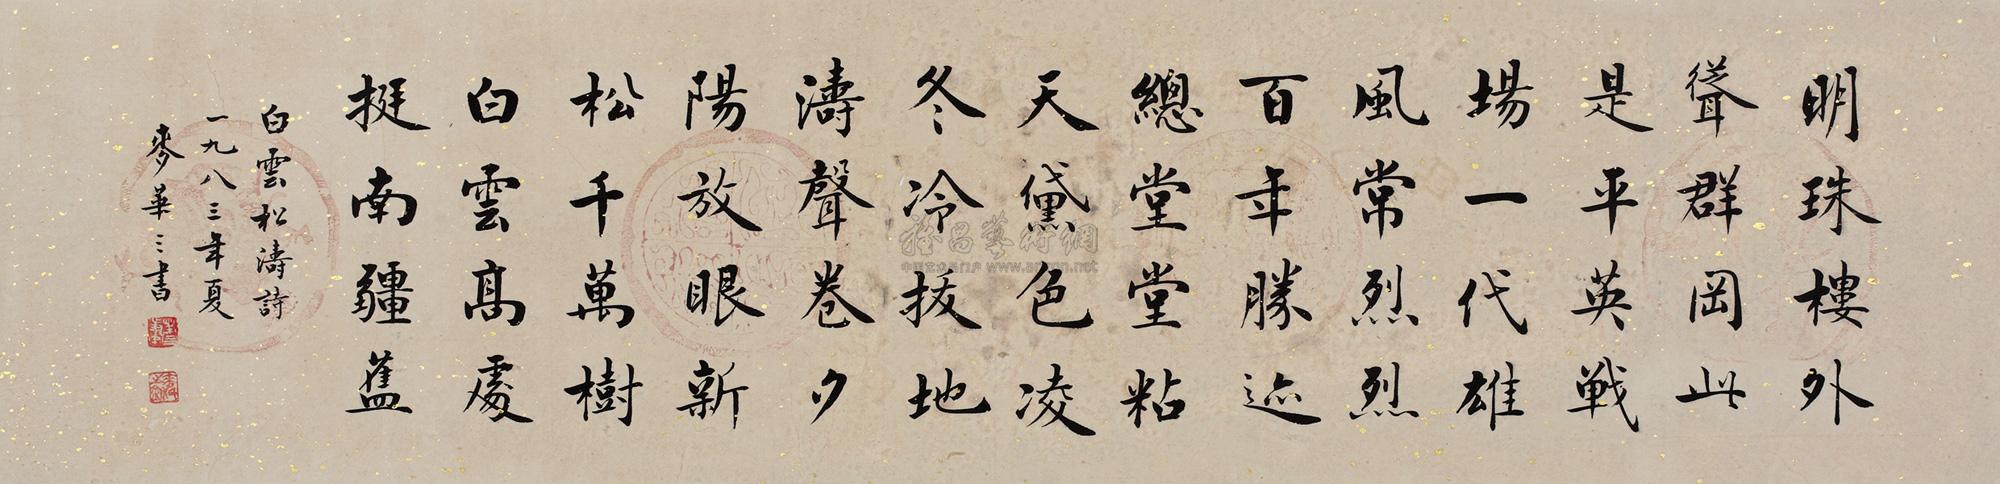 明珠樓外
聳群岡此
是平英戰
場一代雄
風常烈烈
百年勝迹
總堂堂粘
天黛色凌
冬冷拔地
濤聲卷夕
陽放眼新
松千萬樹
白雲高處
挺南疆
白雲松濤詩
一九八三年夏
麥華三書
www.artron.net